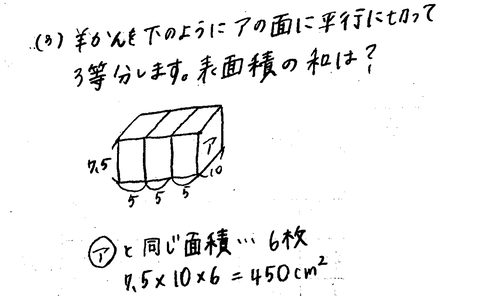 (3) 羊かんを下のようにアの面に平行に切って
3等分します。表面積の和は?
ア
7.5
10
5 5 5
ア と同じ面積… 6枚
7.5×10×6=450cm²